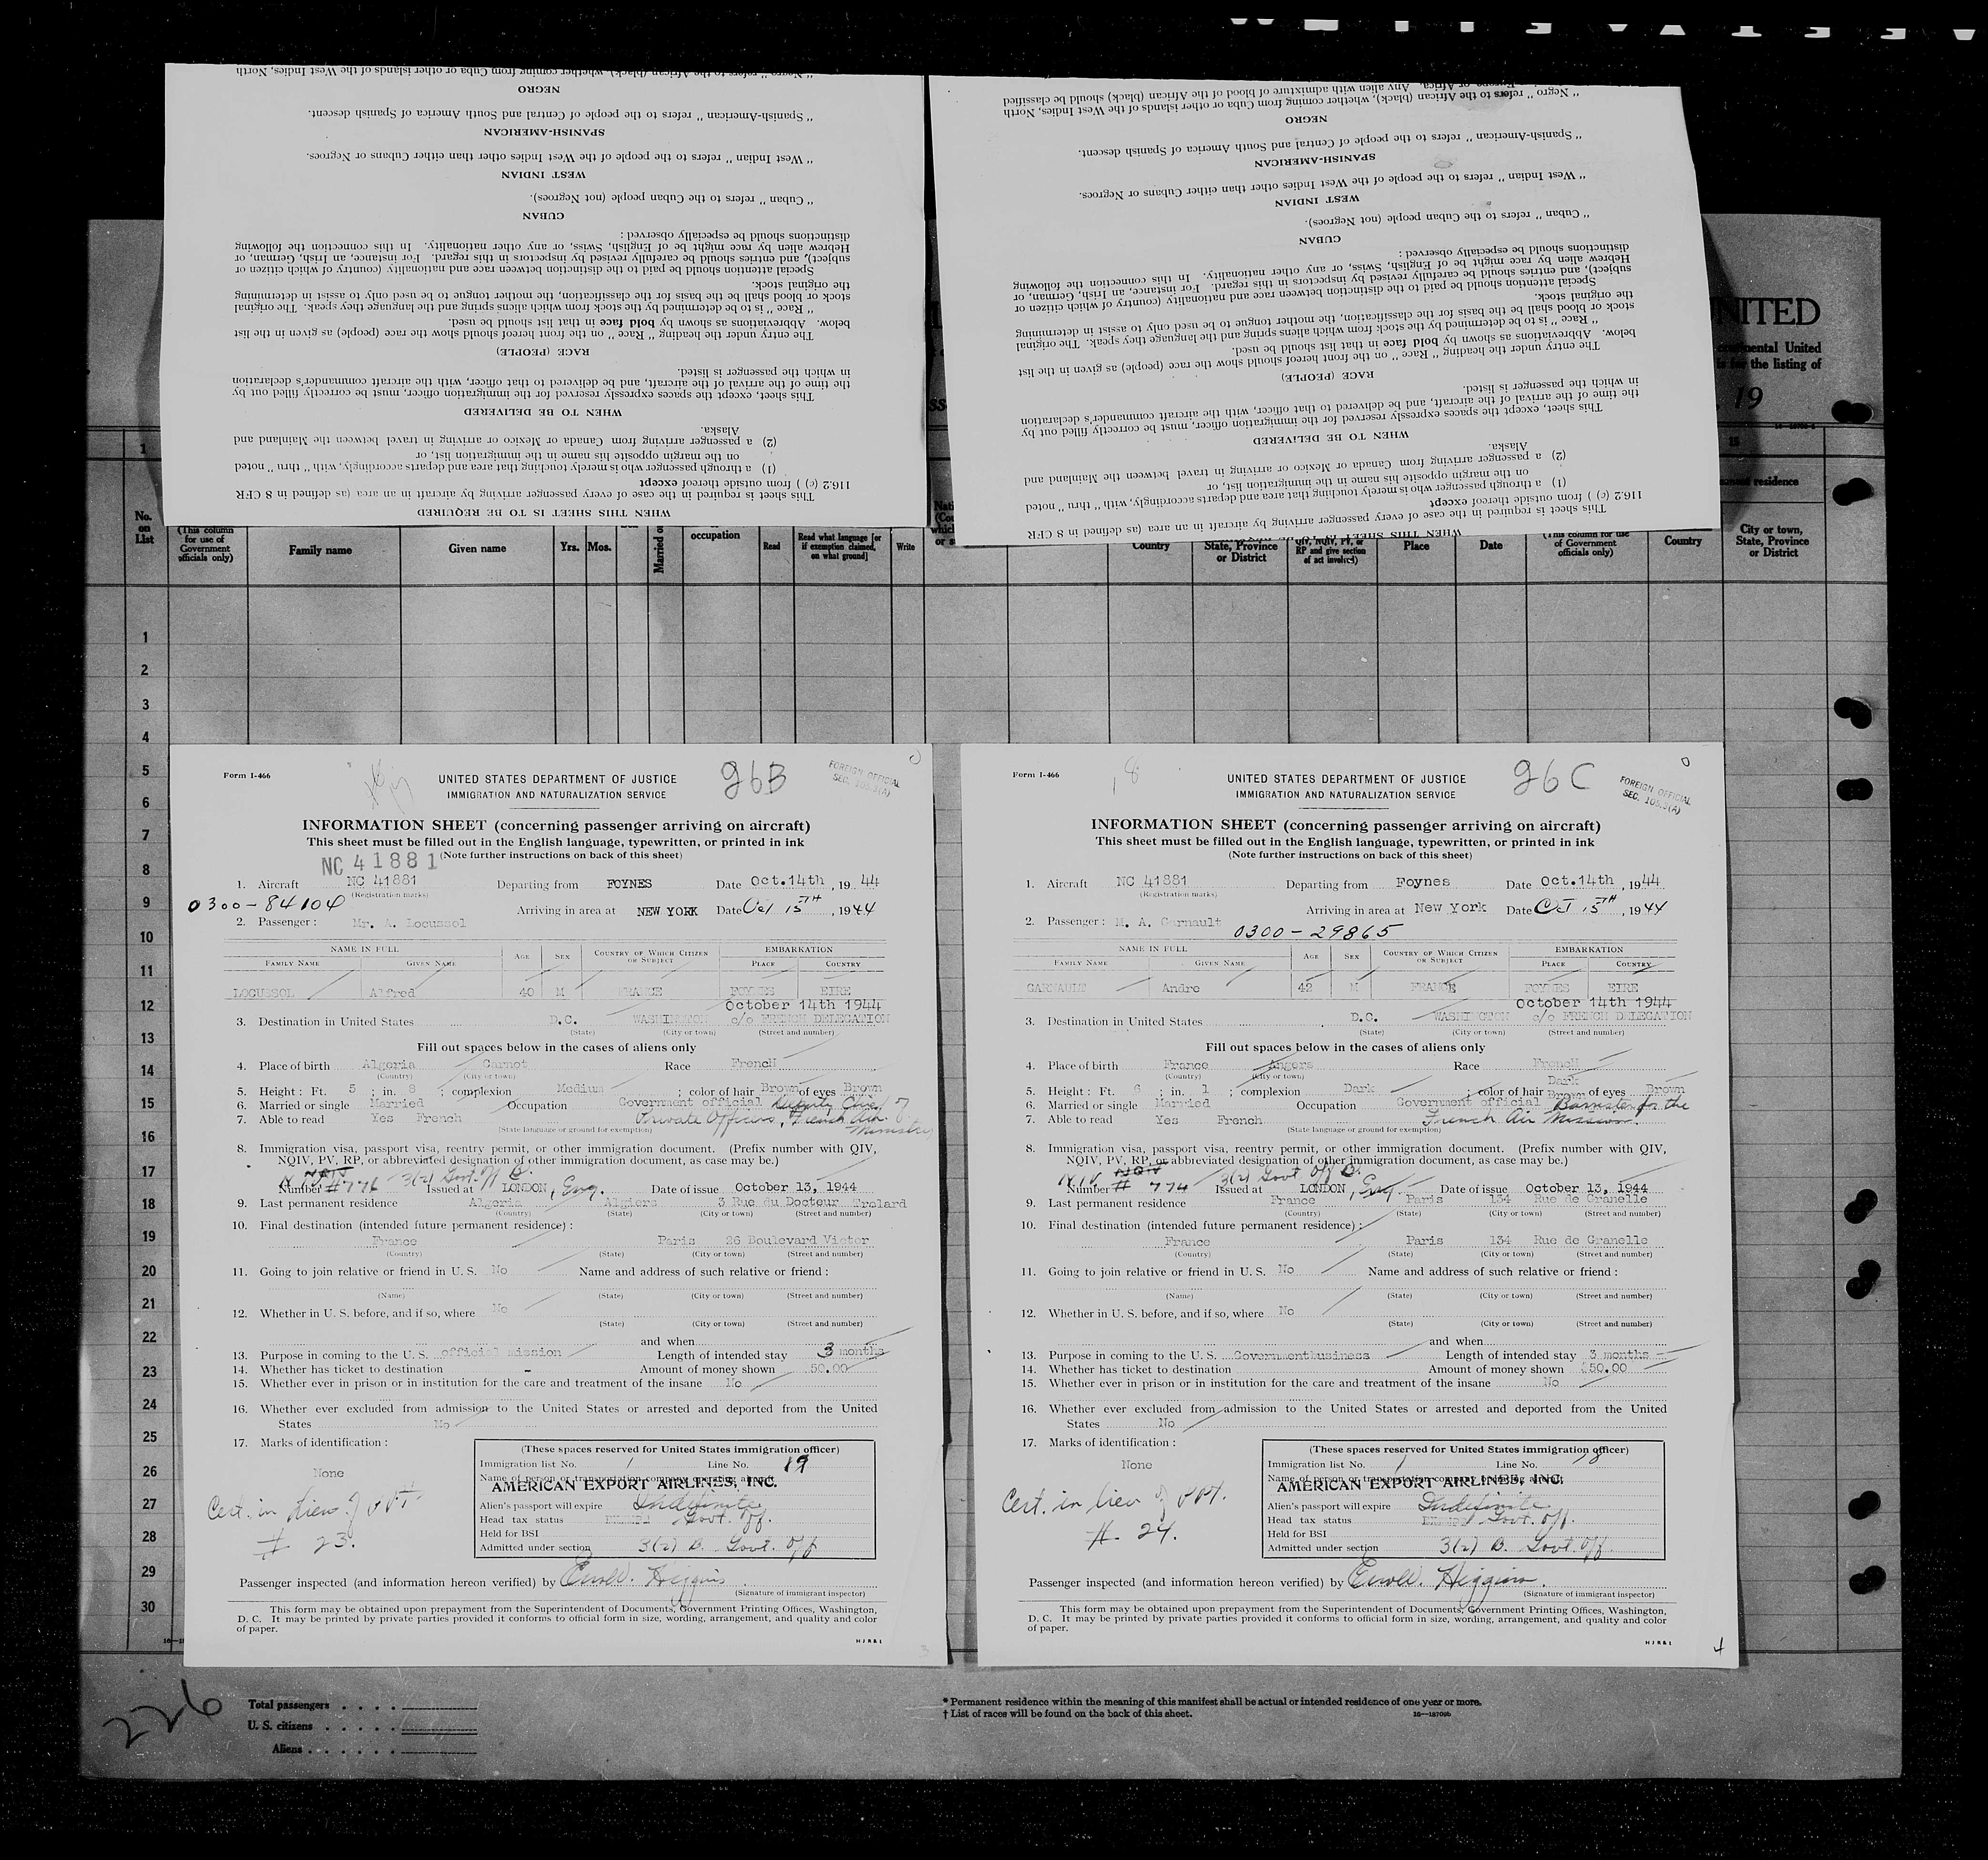 " Negro " refers to the African (black), whether coming from Cuba or other islands of the West Indies, North
NEGRO
" Spanish-American " refers to the people of Central and South America of Spanish descent.
SPANISH-AMERICAN
" West Indian " refers to the people of the West Indies other than either Cubans or Negroes.
WEST INDIAN
" Cuban " refers to the Cuban people (not Negroes).
CUBAN
distinctions should be especially observed :
Hebrew alien by race might be of English, Swiss, or any other nationality. In this connection the following
subject), and entries should be carefully revised by inspectors in this regard. For instance, an Irish, German, or
Special attention should be paid to the distinction between race and nationality (country of which citizen or
the original stock.
stock or blood shall be the basis for the classification, the mother tongue to be used only to assist in determining
" Race " is to be determined by the stock from which aliens spring and the language they speak. The original
below. Abbreviations as shown by bold face in that list should be used.
The entry under the heading " Race " on the front hereof should show the race (people) as given in the list
RACE (PEOPLE)
in which the passenger is listed.
the time of the arrival of the aircraft, and be delivered to that officer, with the aircraft commander's declaration
This sheet, except the spaces expressly reserved for the immigration officer, must be correctly filled out by
WHEN TO BE DELIVERED
Alaska.
(2) a passenger arriving from Canada or Mexico or arriving in travel between the Mainland and
on the margin opposite his name in the immigration list, or
(1) a through passenger who is merely touching that area and departs accordingly, with " thru " noted
116.2 (c) ) from outside thereof except
This sheet is required in the case of every passenger arriving by aircraft in an area (as defined in 8 CFR
WHEN THIS SHEET IS TO BE REQUIRED
Europe or Africa. Any alien with admixture of blood of the African (black) should be classified
" Negro " refers to the African (black), whether coming from Cuba or other islands of the West Indies, North
NEGRO
" Spanish-American " refers to the people of Central and South America of Spanish descent.
SPANISH-AMERICAN
" West Indian " refers to the people of the West Indies other than either Cubans or Negroes.
WEST INDIAN
" Cuban " refers to the Cuban people (not Negroes).
CUBAN
distinctions should be especially observed :
Hebrew alien by race might be of English, Swiss, or any other nationality. In this connection the following
subject), and entries should be carefully revised by inspectors in this regard. For instance, an Irish, German, or
Special attention should be paid to the distinction between race and nationality (country of which citizen or
the original stock.
stock or blood shall be the basis for the classification, the mother tongue to be used only to assist in determining
" Race " is to be determined by the stock from which aliens spring and the language they speak. The original
below. Abbreviations as shown by bold face in that list should be used.
The entry under the heading " Race " on the front hereof should show the race (people) as given in the list
RACE (PEOPLE)
in which the passenger is listed.
the time of the arrival of the aircraft, and be delivered to that officer, with the aircraft commander's declaration
This sheet, except the spaces expressly reserved for the immigration officer, must be correctly filled out by
WHEN TO BE DELIVERED
Alaska.
(2) a passenger arriving from Canada or Mexico or arriving in travel between the Mainland and
on the margin opposite his name in the immigration list, or
(1) a through passenger who is merely touching that area and departs accordingly, with " thru " noted
116.2 (c) ) from outside thereof except
This sheet is required in the case of every passenger arriving by aircraft in an area (as defined in 8 CFR
WHEN THIS SHEET IS
NITED
United
for the listing of
, 19
1
15
residence
No. on List
(This column for use of Government officials only)
Family name
Given name
Yrs. Mos.
Married
occupation
Read
Read what language [or if exemption claimed, on what ground]
Write
Country
State, Province or District
RP and give section of act involved)
Place
Date
(This column for use of Government officials only)
Country
City or town, State, Province or District
1
2
3
4
5
6
7
8
9
10
11
12
13
14
15
16
17
18
19
20
21
22
23
24
25
26
27
28
29
30
Form I-466
UNITED STATES DEPARTMENT OF JUSTICE
IMMIGRATION AND NATURALIZATION SERVICE
26B
FOREIGN OFFICIAL
SEC. 105.3(A)
INFORMATION SHEET (concerning passenger arriving on aircraft)
This sheet must be filled out in the English language, typewritten, or printed in ink
(Note further instructions on back of this sheet)
NC 41881
1. Aircraft NC 41881 Departing from FOYNES Date Oct.14th , 19 44
(Registration marks)
0300-84104
Arriving in area at NEW YORK Date Oct 15TH , 1944
2. Passenger : Mr. A. Locussol
NAME IN FULL AGE SEX COUNTRY OF WHICH CITIZEN OR SUBJECT EMBARKATION
FAMILY NAME GIVEN NAME PLACE COUNTRY
LOCUSSOL Alfred 40 M FRANCE FOYNES EIRE
October 14th 1944
3. Destination in United States D.C. WASHINGTON c/o FRENCH DELEGATION
(State) (City or town) (Street and number)
Fill out spaces below in the cases of aliens only
4. Place of birth Algeria Carnot Race FrencH
(Country) (City or town)
5. Height : Ft. 5 ; in. 8 ; complexion Medium ; color of hair Brown of eyes Brown
6. Married or single Married Occupation Government official Deputy Chief of
7. Able to read Yes French Private Officers, French Air Ministry
(State language or ground for exemption)
8. Immigration visa, passport visa, reentry permit, or other immigration document. (Prefix number with QIV,
NQIV, PV, RP, or abbreviated designation of other immigration document, as case may be.)
NIV NQIV 3(2) Govt. Off B.
Number # 776 Issued at LONDON, Eng. Date of issue October 13, 1944
9. Last permanent residence Algeria Algiers 3 Rue du Docteur Trolard
(Country) (State) (City or town) (Street and number)
10. Final destination (intended future permanent residence) :
France Paris 26 Boulevard Victor
(Country) (State) (City or town) (Street and number)
11. Going to join relative or friend in U. S. No Name and address of such relative or friend :
(Name) (State) (City or town) (Street and number)
12. Whether in U. S. before, and if so, where No
(State) (City or town) (Street and number)
and when
13. Purpose in coming to the U. S. official mission Length of intended stay 3 months
14. Whether has ticket to destination - Amount of money shown 50.00
15. Whether ever in prison or in institution for the care and treatment of the insane No
16. Whether ever excluded from admission to the United States or arrested and deported from the United
States No
17. Marks of identification :
None
Cert. in lieu of PPT.
# 23.
(These spaces reserved for United States immigration officer)
Immigration list No. 1 Line No. 19
Name of person or transportation company operating aircraft
AMERICAN EXPORT AIRLINES, INC.
Alien's passport will expire Indefinite
Head tax status EXEMPT Govt. Off.
Held for BSI
Admitted under section 3(2) B. Govt. Off
Passenger inspected (and information hereon verified) by Higgins
(Signature of immigrant inspector)
This form may be obtained upon prepayment from the Superintendent of Documents, Government Printing Offices, Washington,
D. C. It may be printed by private parties provided it conforms to official form in size, wording, arrangement, and quality and color
of paper.
H J R & L
3
Form I-466
18
UNITED STATES DEPARTMENT OF JUSTICE
IMMIGRATION AND NATURALIZATION SERVICE
26C
FOREIGN OFFICIAL
SEC. 105.3(A)
INFORMATION SHEET (concerning passenger arriving on aircraft)
This sheet must be filled out in the English language, typewritten, or printed in ink
(Note further instructions on back of this sheet)
1. Aircraft NC 41881 Departing from Foynes Date Oct.14th , 1944
(Registration marks)
Arriving in area at New York Date OCT 15TH , 1944
2. Passenger : M. A. Garnault
0300-29865
NAME IN FULL AGE SEX COUNTRY OF WHICH CITIZEN OR SUBJECT EMBARKATION
FAMILY NAME GIVEN NAME PLACE COUNTRY
GARNAULT Andre 42 M FRANCE FOYNES EIRE
October 14th 1944
3. Destination in United States D.C. WASHINGTON c/o FRENCH DELEGATION
(State) (City or town) (Street and number)
Fill out spaces below in the cases of aliens only
4. Place of birth France Angers Race FrencH
(Country) (City or town)
5. Height : Ft. 6 ; in. 1 ; complexion Dark ; color of hair Dark Brown of eyes Brown
6. Married or single Married Occupation Government official Barrister for the
7. Able to read Yes French French Air Mission.
(State language or ground for exemption)
8. Immigration visa, passport visa, reentry permit, or other immigration document. (Prefix number with QIV,
NQIV, PV, RP, or abbreviated designation of other immigration document, as case may be.)
NIV NQIV 3(2) Govt Off B.
Number # 774 Issued at LONDON, Eng. Date of issue October 13, 1944
9. Last permanent residence France Paris 134 Rue de Grenelle
(Country) (State) (City or town) (Street and number)
10. Final destination (intended future permanent residence) :
France Paris 134 Rue de Granelle
(Country) (State) (City or town) (Street and number)
11. Going to join relative or friend in U. S. No Name and address of such relative or friend :
(Name) (State) (City or town) (Street and number)
12. Whether in U. S. before, and if so, where No
(State) (City or town) (Street and number)
and when
13. Purpose in coming to the U. S. Governmentbusiness Length of intended stay 3 months
14. Whether has ticket to destination Amount of money shown 50.00
15. Whether ever in prison or in institution for the care and treatment of the insane No
16. Whether ever excluded from admission to the United States or arrested and deported from the United
States No
17. Marks of identification :
None
Cert. in lieu of PPT.
# 24.
(These spaces reserved for United States immigration officer)
Immigration list No. 1 Line No. 18
Name of person or transportation company operating aircraft
AMERICAN EXPORT AIRLINES, INC.
Alien's passport will expire Indefinite
Head tax status EXEMPT Govt. Off.
Held for BSI
Admitted under section 3(2) B. Govt. Off.
Passenger inspected (and information hereon verified) by Higgins
(Signature of immigrant inspector)
This form may be obtained upon prepayment from the Superintendent of Documents, Government Printing Offices, Washington,
D. C. It may be printed by private parties provided it conforms to official form in size, wording, arrangement, and quality and color
of paper.
H J R & L
4
226
Total passengers
U. S. citizens
Aliens
* Permanent residence within the meaning of this manifest shall be actual or intended residence of one year or more.
† List of races will be found on the back of this sheet.